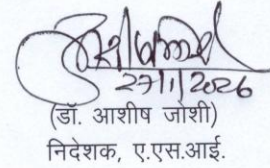 27/1/2026
(डॉ. आशीष जोशी)
निदेशक, ए.एस.आई.